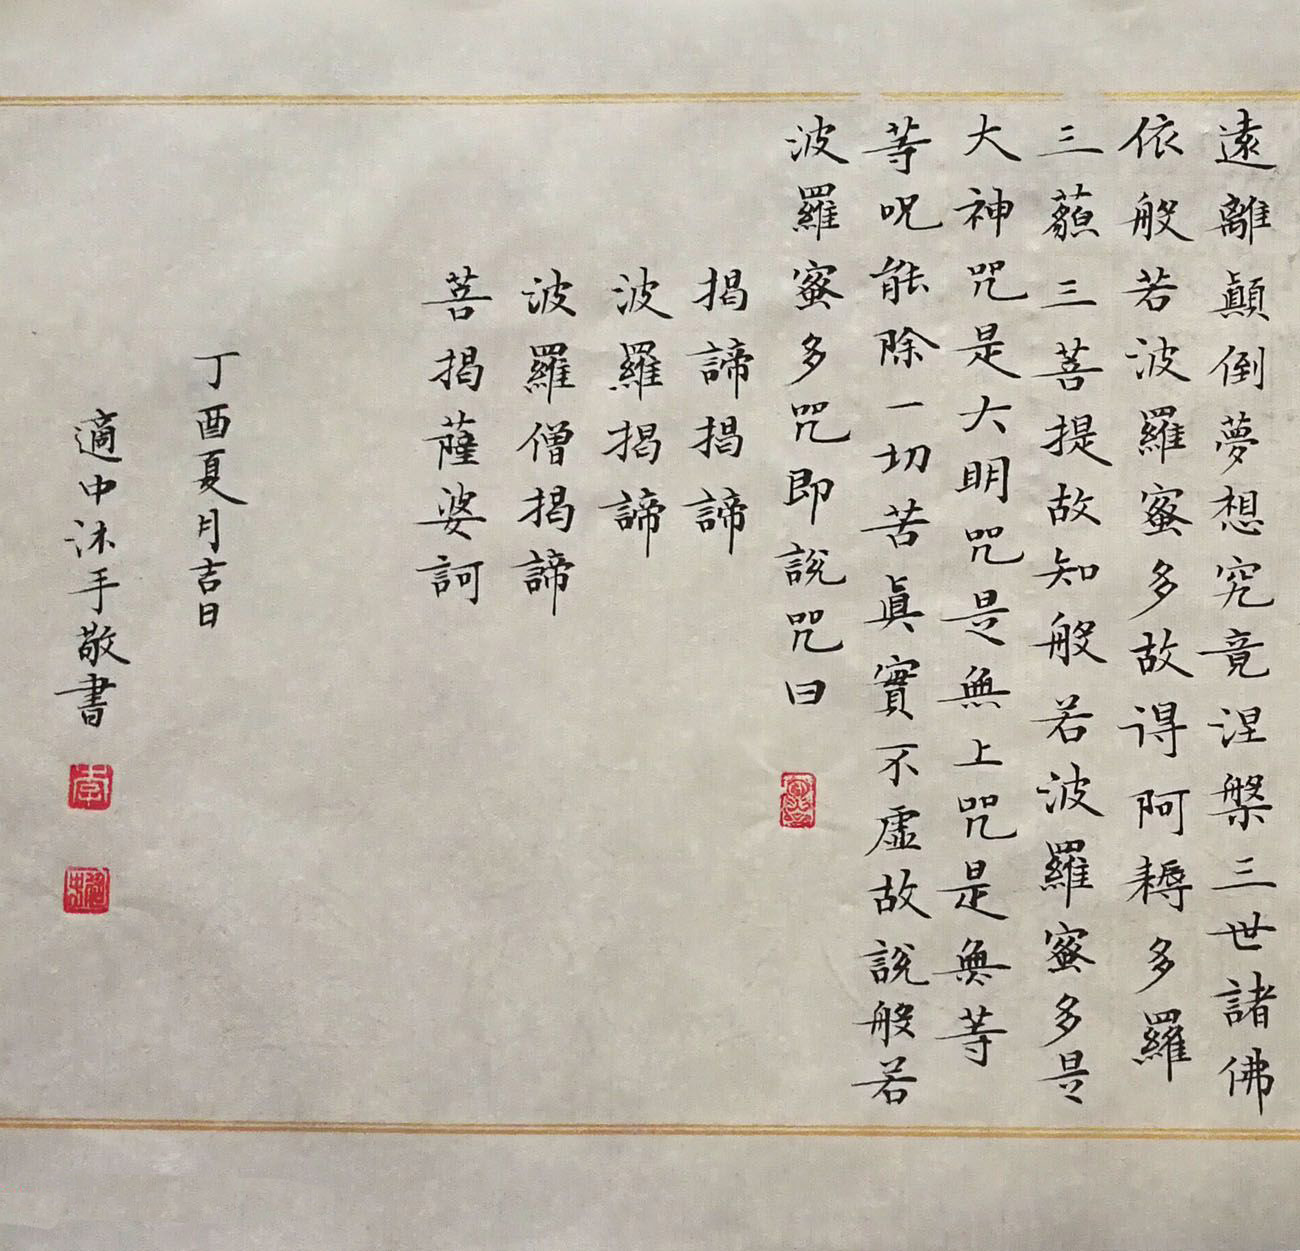 遠離顛倒夢想究竟涅槃三世諸佛
依般若波羅蜜多故得阿耨多羅
三藐三菩提故知般若波羅蜜多是
大神咒是大明咒是無上咒是無等
等呪能除一切苦真實不虛故說般若
波羅蜜多咒即說咒曰
揭諦揭諦
波羅揭諦
波羅僧揭諦
菩揭薩婆訶
丁酉夏月吉日
適中沐手敬書
李